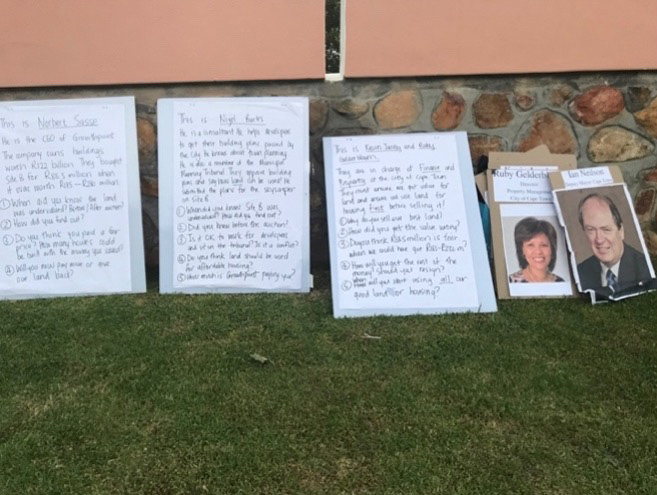 This is Norbert Sasse
He is the CEO of Growthpoint
The company owns buildings
worth R122 billion. They bought
Site B for R86.5 million when
it was worth R165 - R250 million
① When did you know the land
was undervalued? Before / After auction?
② How did you find out?
③ Do you think you paid a fair
price? How many houses could
be built with the money you saved?
④ Will you now pay more or give
our land back?
This is Nigel Burls
He is a consultant. He helps developers
to get their building plans passed by
the City. He knows about Town Planning
He is also a member of the Municipal
Planning Tribunal. They approve building
plans and say how land can be used. He
the plans for the skyscraper
on site B.
① When did you know Site B was
undervalued? How did you find out?
② Did you know before the auction?
③ Is it OK to work for developers
and sit on the tribunal? Is it a conflict?
④ Do you think land should be used
for affordable housing?
⑤ How much is Growthpoint paying you?
This is Kevin Jacoby and Ruby
They are in charge of Finance and
Property at the City of Cape Town
They must ensure we get value for
land and ensure we use land for
housing first before selling it!
① Why do you sell our best land?
② How did you get the value wrong?
③ Do you think R86.5 million is fair
when we could have got
④ How will you get the rest of the
money? Should you resign?
⑤ When will you start using all our
good land for housing?
Ruby Gelderbl
Director
Property Management
City of Cape Town
Ian Neilson
Deputy Mayor Cape Town